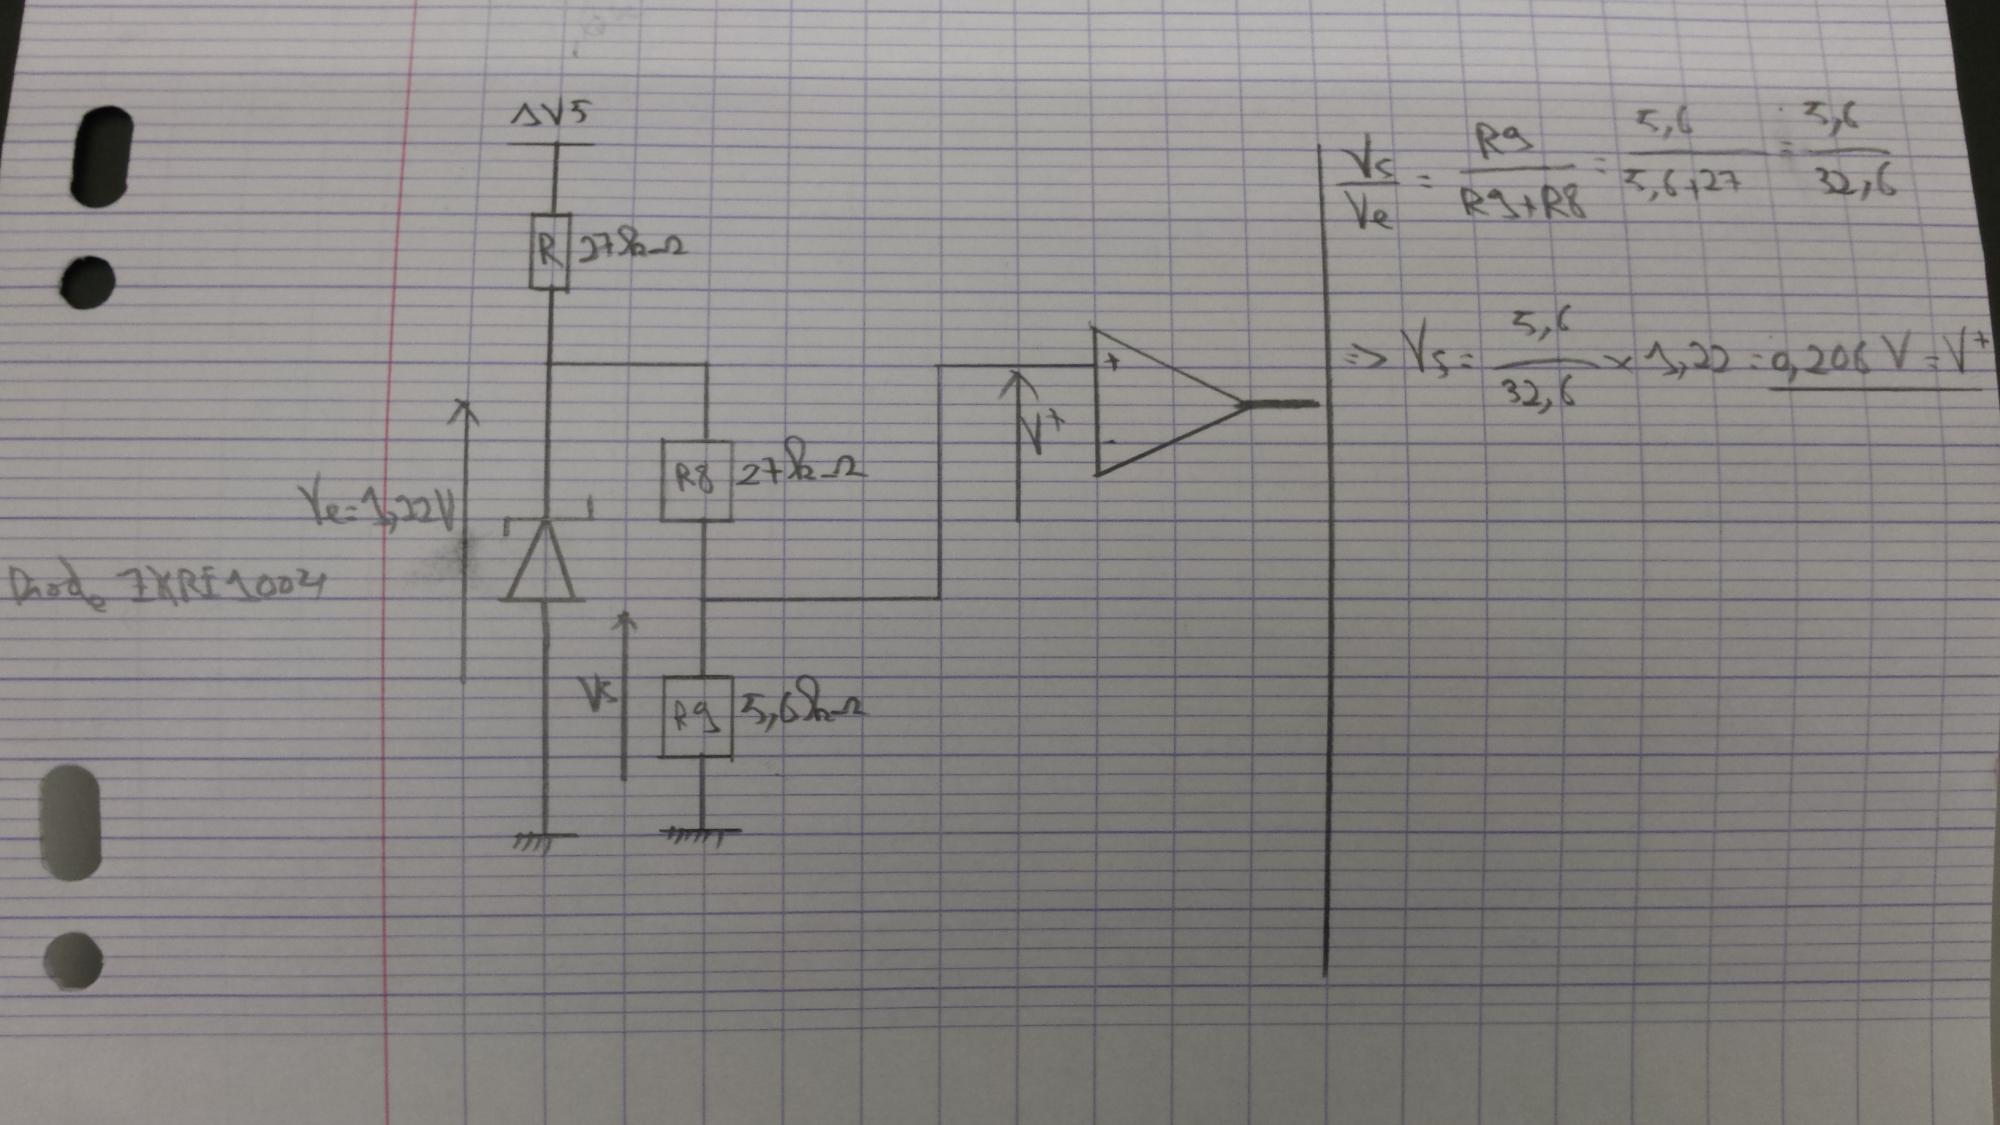 ΔV5
R 27kΩ
Ve=1,22V
Diode ZXRE1004
R8 27kΩ
Vs
R9 5,6kΩ
+
-
V+
Vs/Ve = R9/(R9+R8) = 5,6/(5,6+27) = 5,6/32,6
=> Vs = 5,6/32,6 × 1,22 = 0,206 V = V+